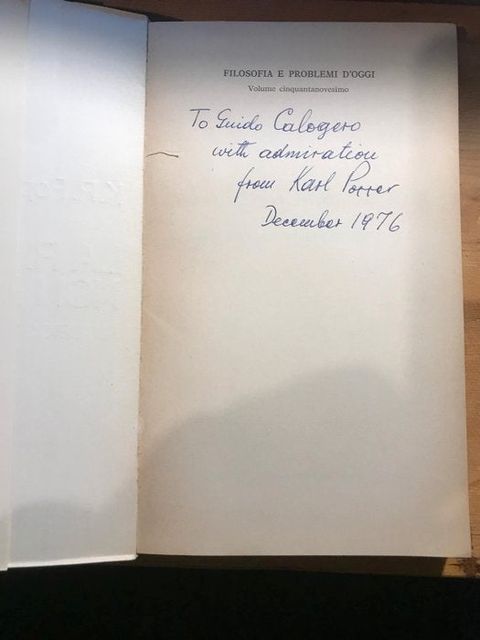 FILOSOFIA E PROBLEMI D'OGGI
Volume cinquantanovesimo
To Guido Calogero
with admiration
from Karl Popper
December 1976